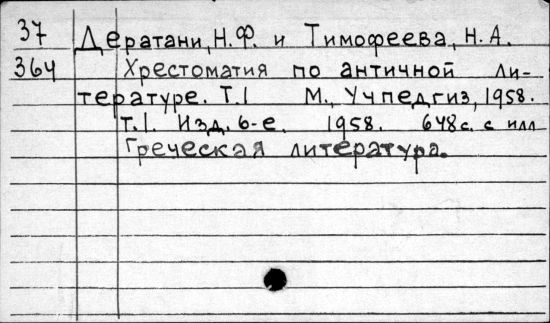 37 Дератани, Н.Ф. и Тимофеева, Н.А.
364 Хрестоматия по античной ли-
тературе. Т.I М., Учпедгиз, 1958.
Т.I. Изд. 6-е. 1958. 648с. с илл
Греческая литература.